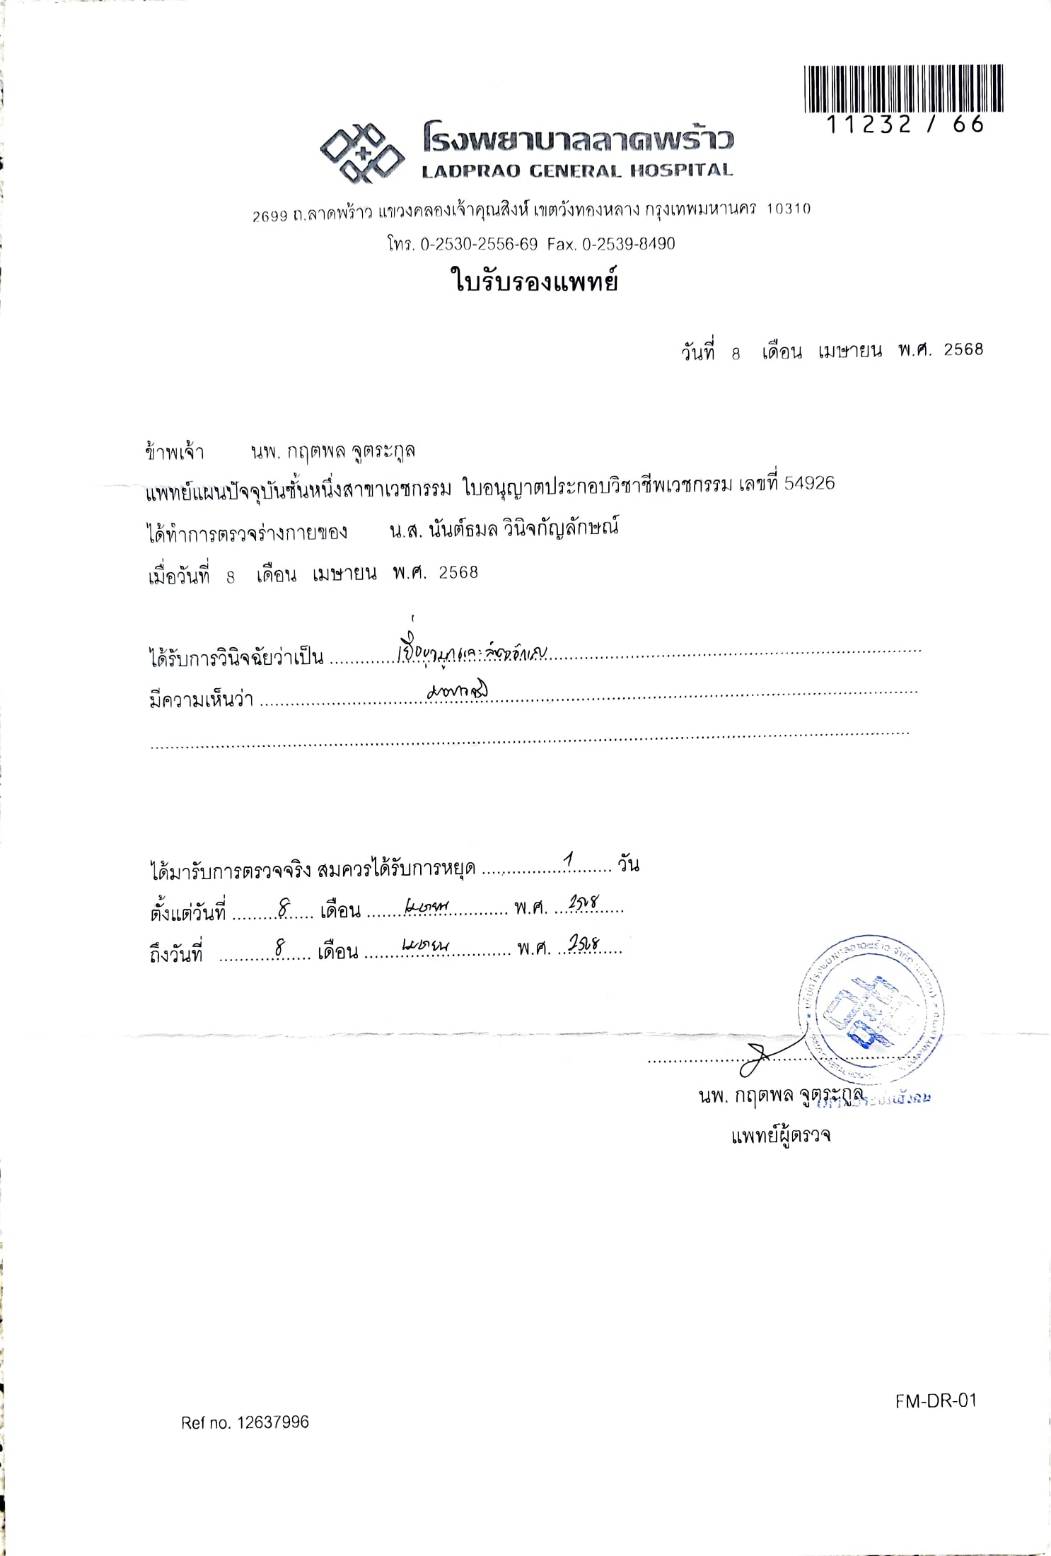 11232 / 66
โรงพยาบาลลาดพร้าว
LADPRAO GENERAL HOSPITAL
2699 ถ.ลาดพร้าว แขวงคลองเจ้าคุณสิงห์ เขตวังทองหลาง กรุงเทพมหานคร 10310
โทร. 0-2530-2556-69 Fax. 0-2539-8490
ใบรับรองแพทย์
วันที่ 8 เดือน เมษายน พ.ศ. 2568
ข้าพเจ้า นพ. กฤตพล จูตระกูล
แพทย์แผนปัจจุบันชั้นหนึ่งสาขาเวชกรรม ใบอนุญาตประกอบวิชาชีพเวชกรรม เลขที่ 54926
ได้ทำการตรวจร่างกายของ น.ส. นันต์ธมล วินิจกัญลักษณ์
เมื่อวันที่ 8 เดือน เมษายน พ.ศ. 2568
ได้รับการวินิจฉัยว่าเป็น เยื่อบุจมูกและ
มีความเห็นว่า
ได้มารับการตรวจจริง สมควรได้รับการหยุด 1 วัน
ตั้งแต่วันที่ 8 เดือน เมษายน พ.ศ. 2568
ถึงวันที่ 8 เดือน เมษายน พ.ศ. 2568
นพ. กฤตพล จูตระกูล
แพทย์ผู้ตรวจ
FM-DR-01
Ref no. 12637996